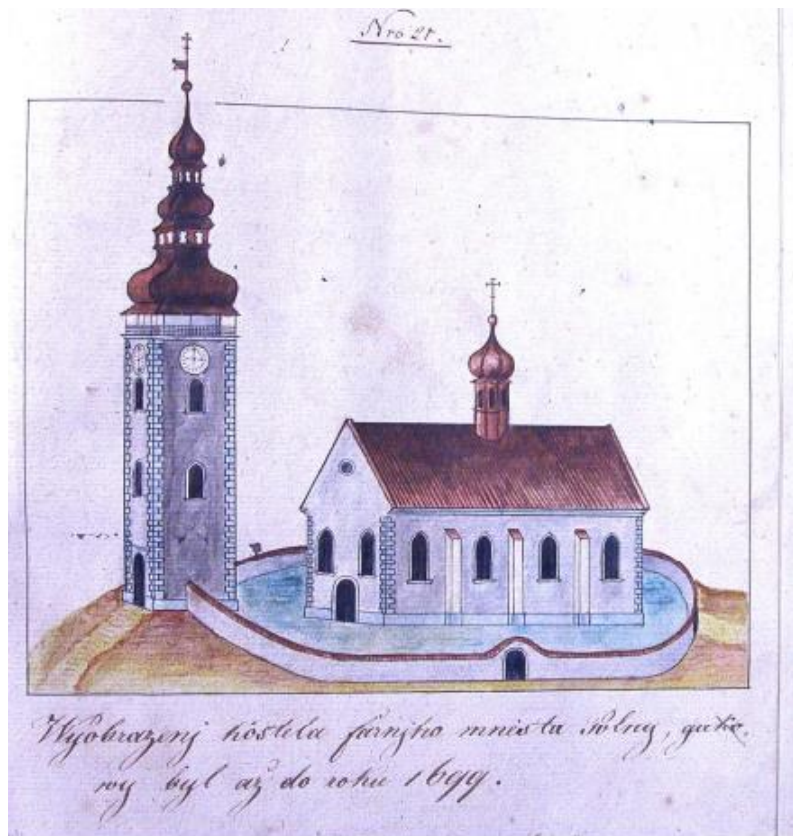 Nro 21.
Wyobrazenj kostela farnjho města Polny, gakо-
wy byl až do roku 1699.